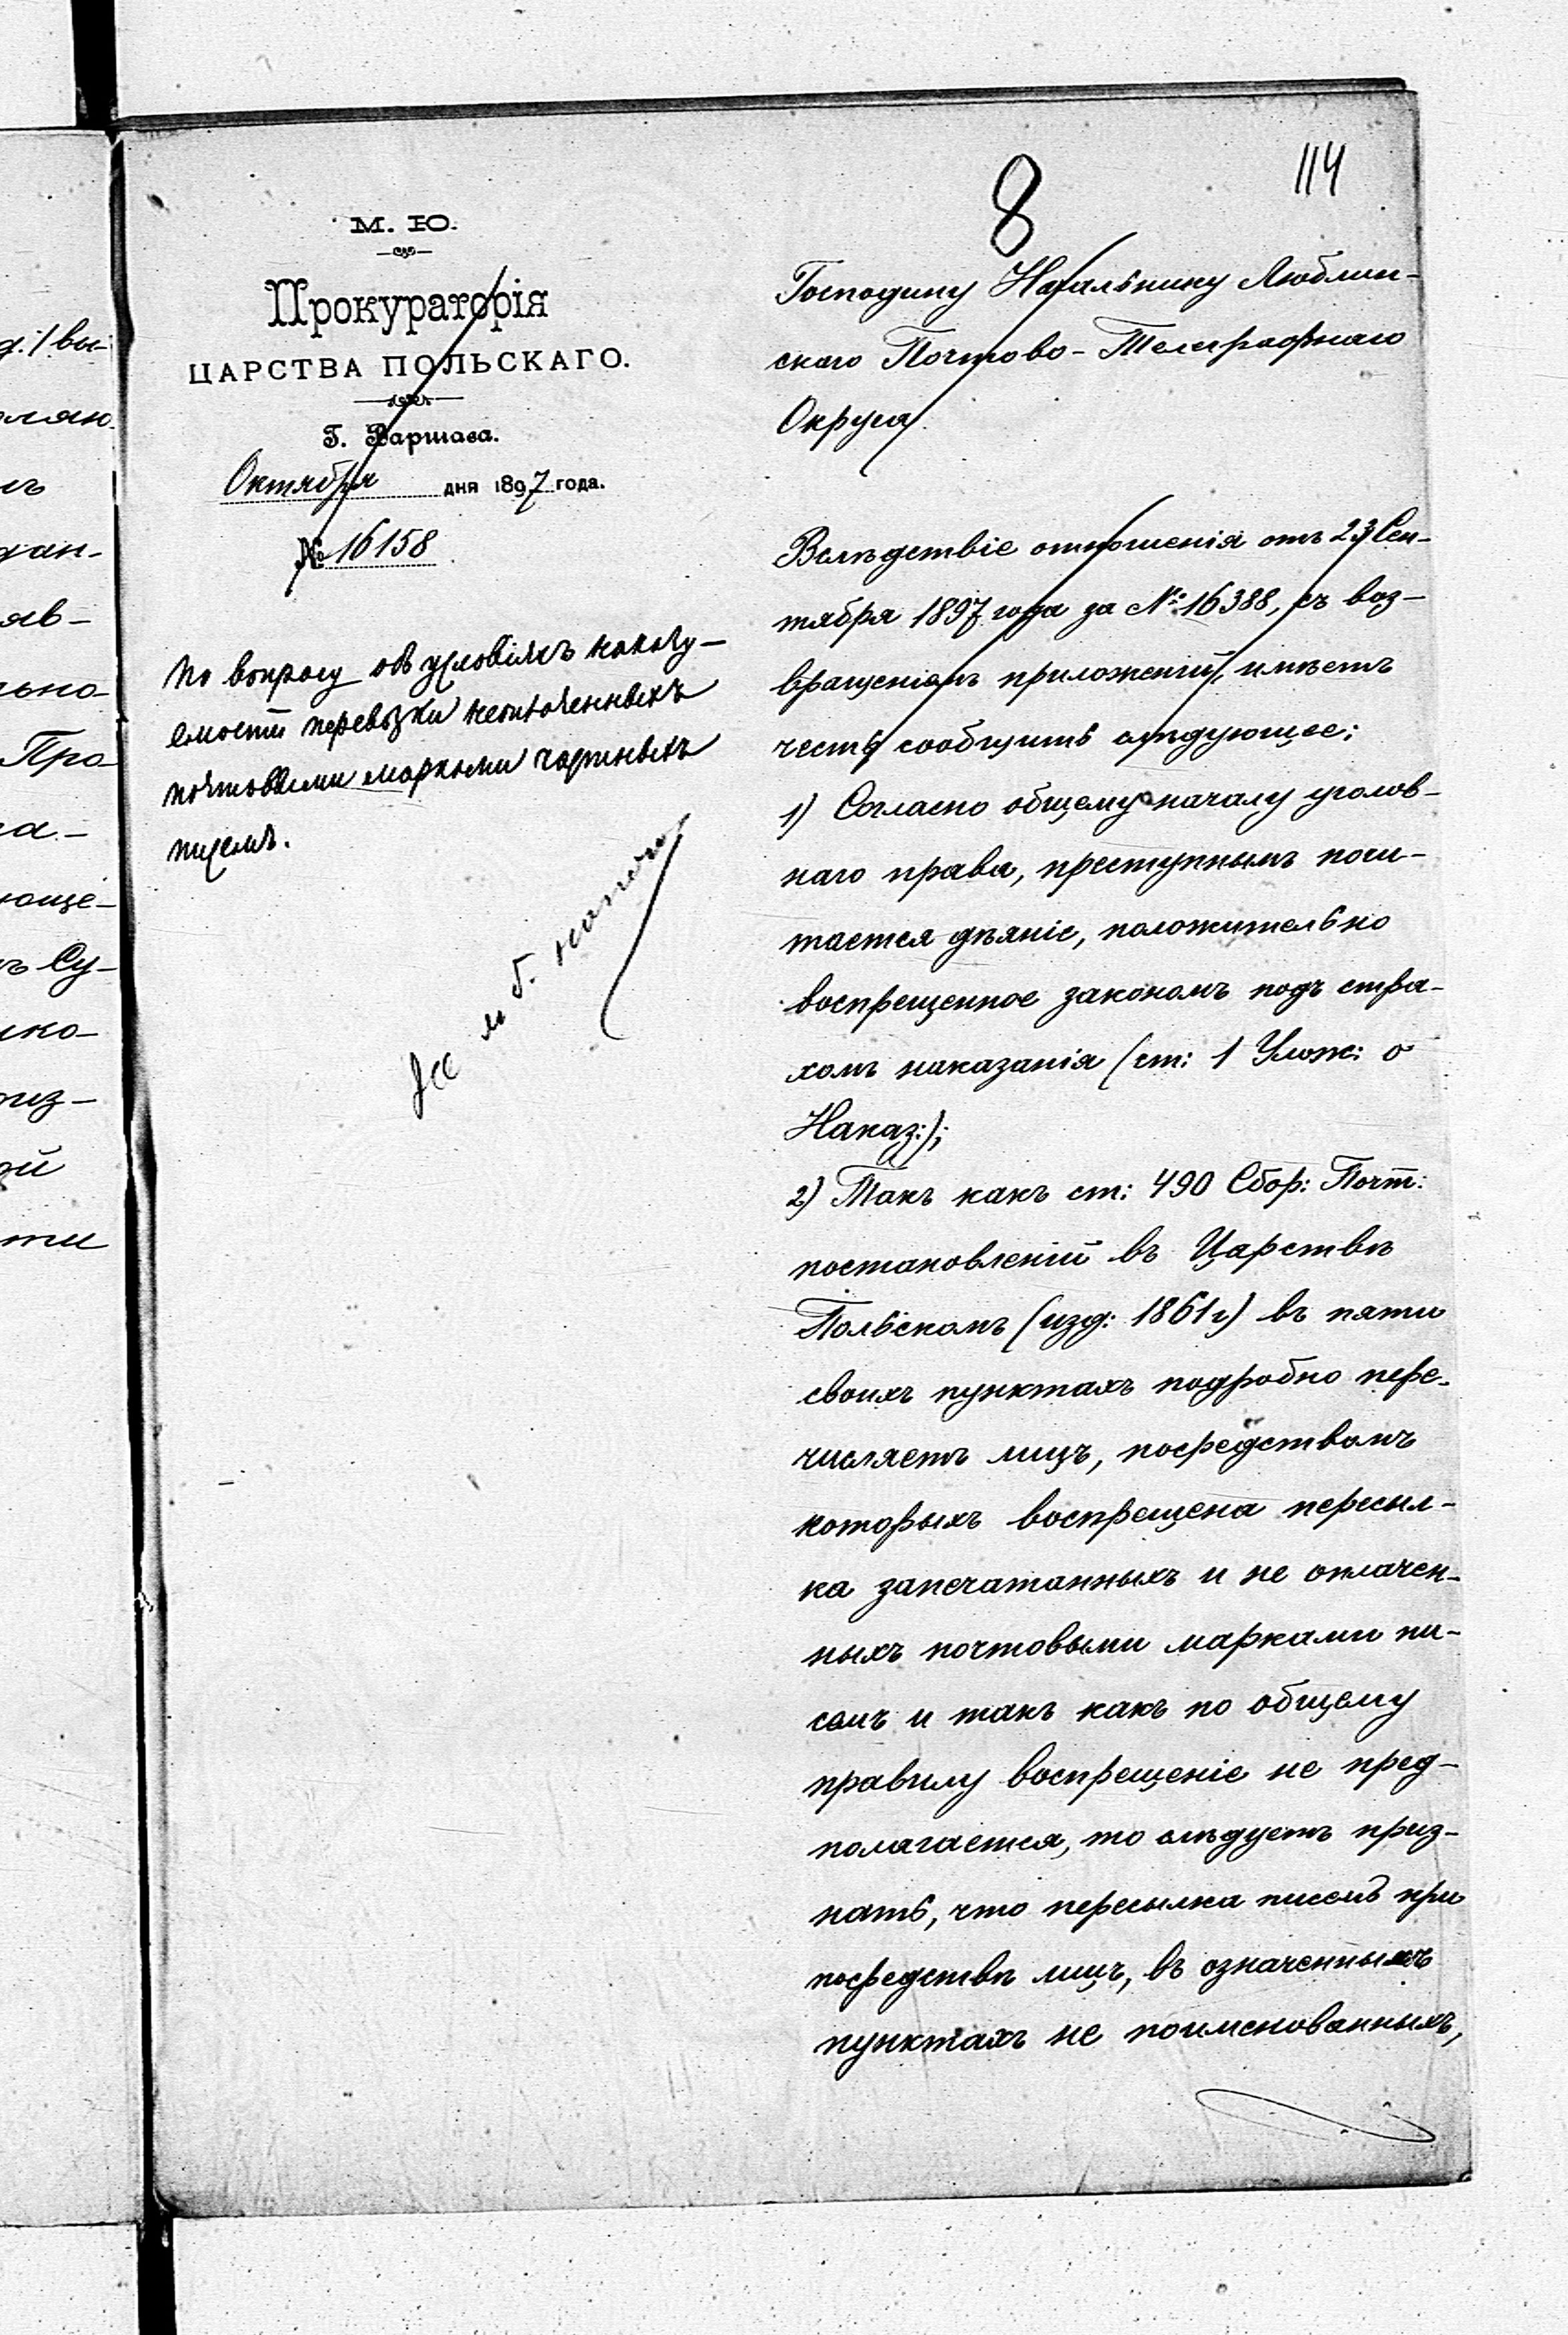 8
114
М. Ю.
Прокураторія
ЦАРСТВА ПОЛЬСКАГО.
Г. Варшава.
Октября дня 1897 года.
№ 16158
По вопросу объ условіяхъ наказу-
емости перевозки неоплоченныхъ
почтовыми марками частныхъ
писемъ.
Господину Начальнику Люблин-
скаго Почтово-Телеграфнаго
Округа.
Вслѣдствіе отношенія отъ 23 Сен-
тября 1897 года за №: 16388, съ воз-
вращеніемъ приложеній, имѣетъ
честь сообщить слѣдующее:
1) Согласно общему началу уголов-
наго права, преступнымъ почи-
тается дѣяніе, положительно
воспрещенное закономъ подъ стра-
хомъ наказанія (ст: 1 Улож: о
Наказ:);
2) Такъ какъ ст: 490 Сбор: Почт:
постановленій въ Царствѣ
Польскомъ (изд: 1861 г) въ пяти
своихъ пунктахъ подробно пере-
числяетъ лицъ, посредствомъ
которыхъ воспрещена пересыл-
ка запечатанныхъ и не оплачен-
ныхъ почтовыми марками пи-
семъ и такъ какъ по общему
правилу воспрещеніе не пред-
полагается, то слѣдуетъ приз-
нать, что пересылка писемъ при
посредствѣ лицъ, въ означенныхъ
пунктахъ не поименованныхъ,
д:/ вы-
дан-
яв-
льно-
Про-
ка-
юще-
ъ Су-
ико-
низ-
ой
ти